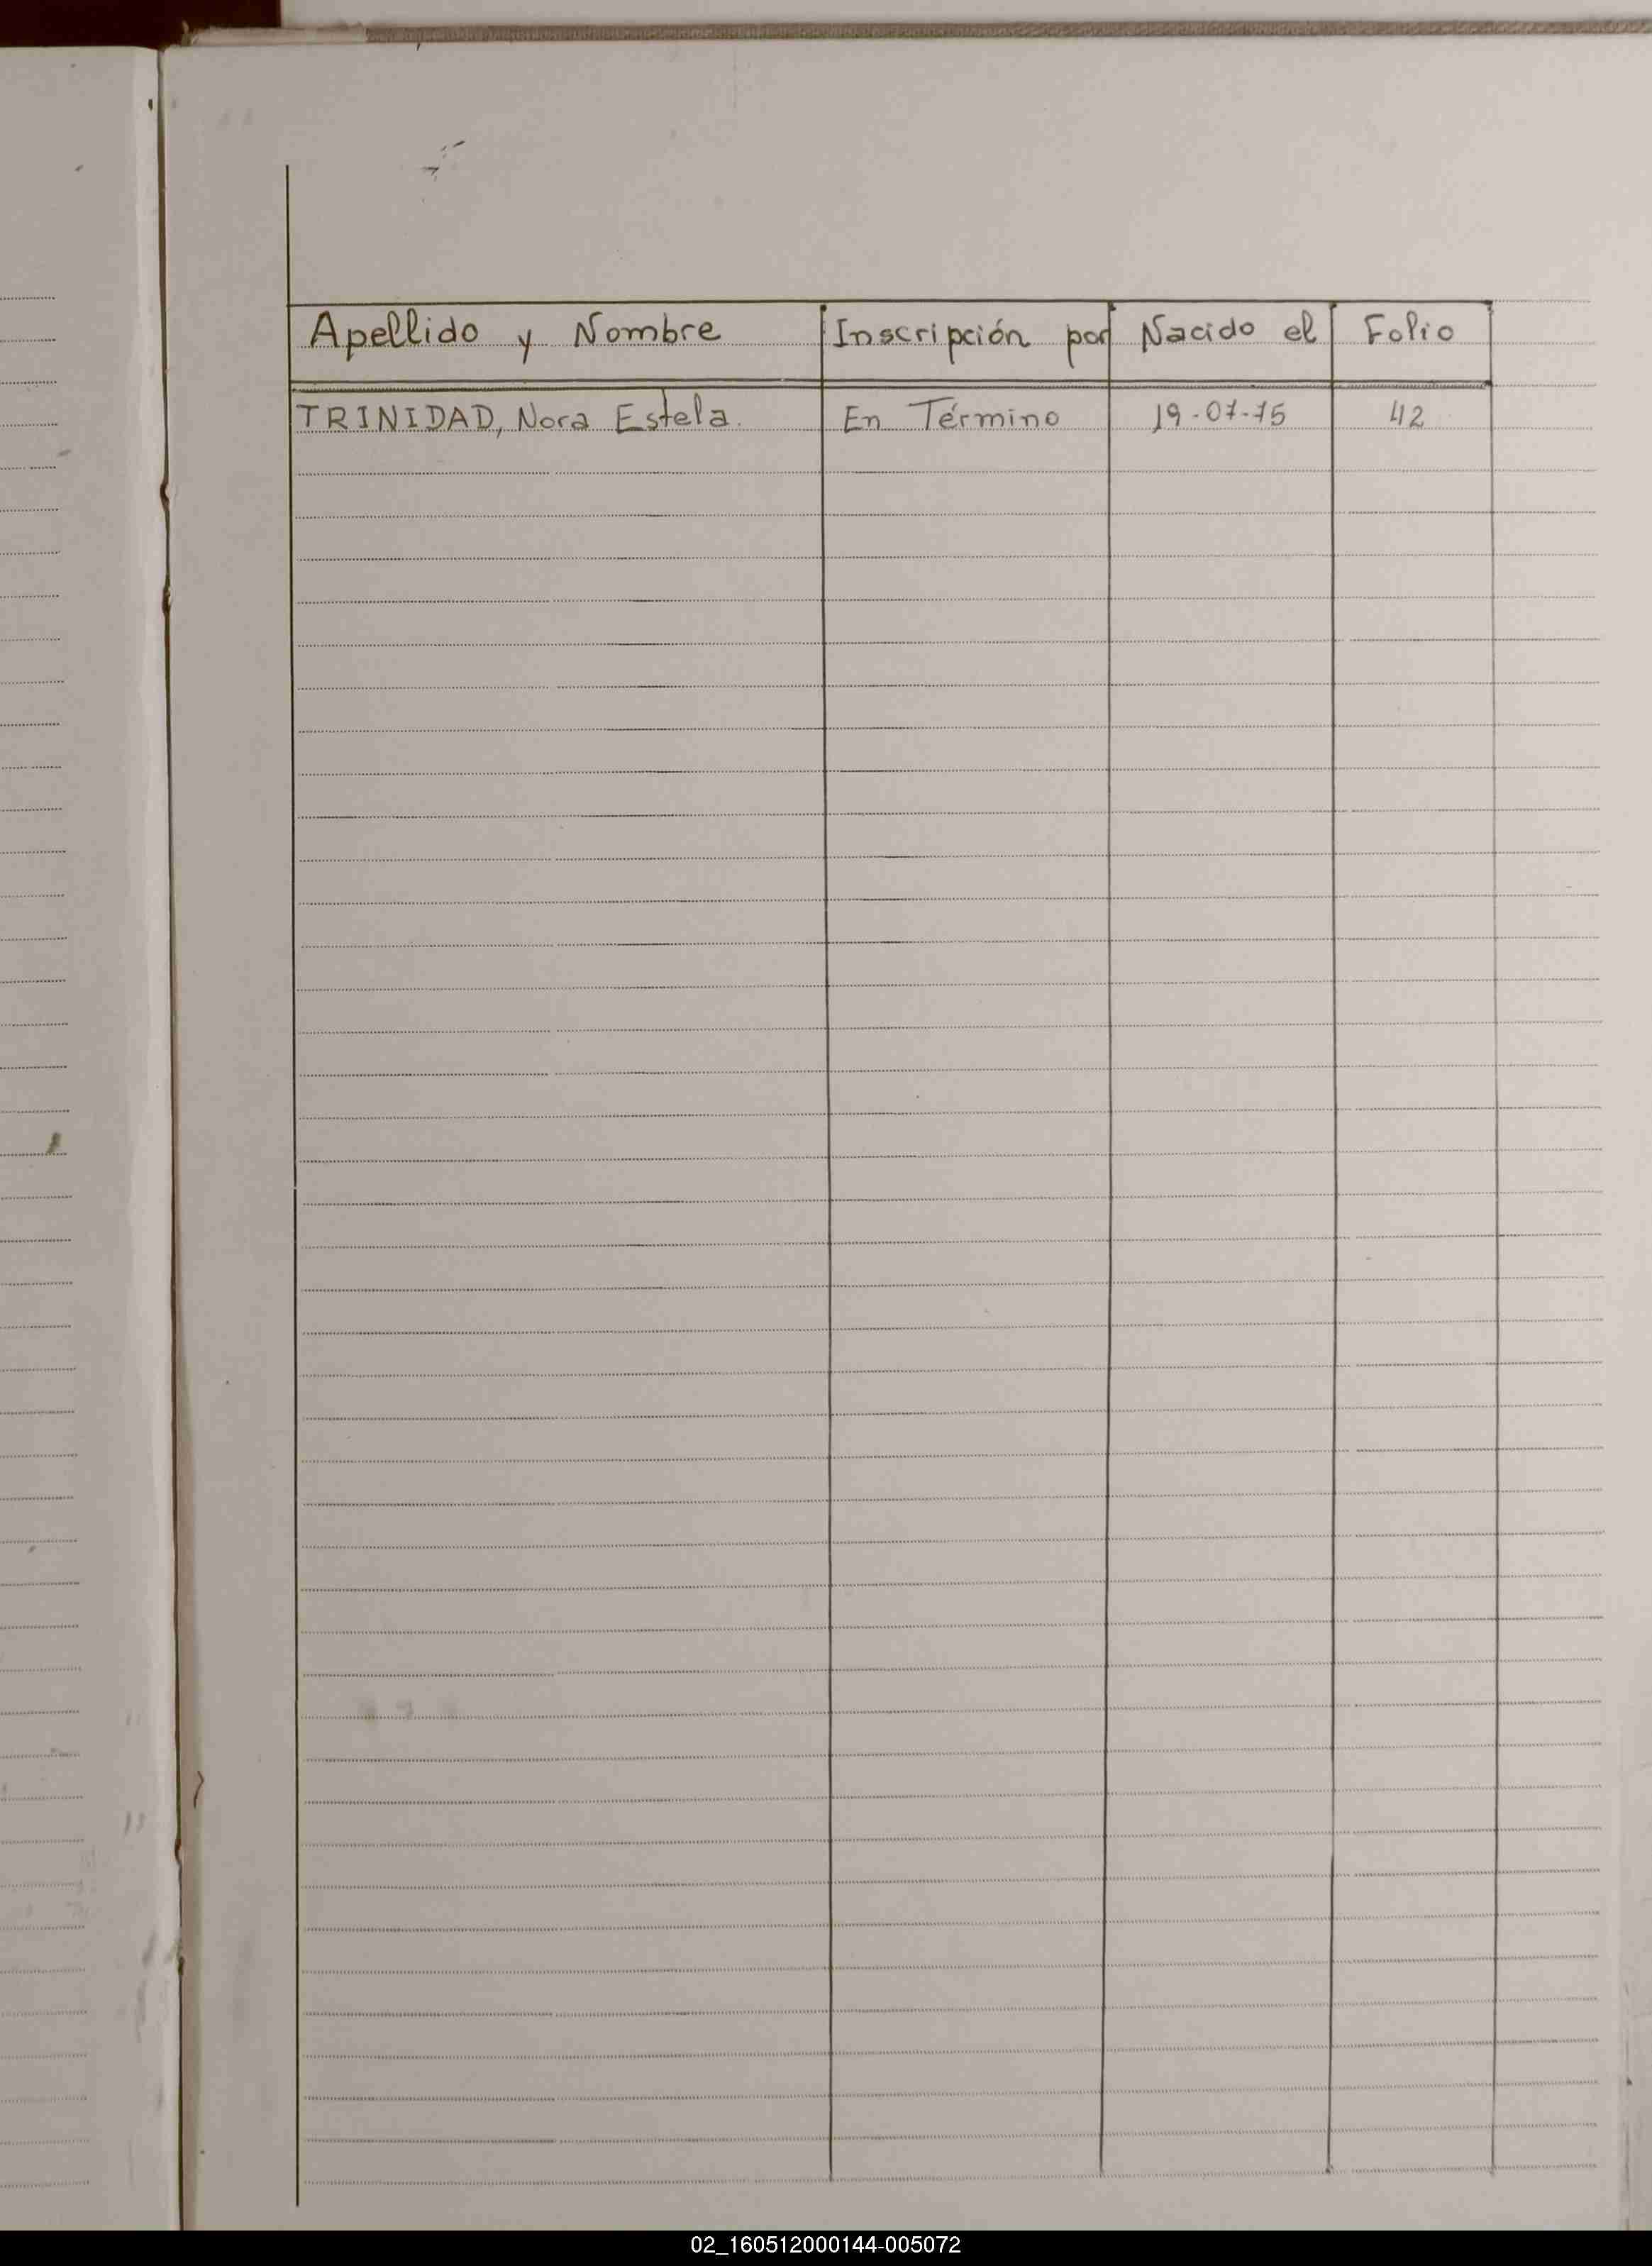 Apellido y Nombre Inscripción por Nacido el Folio
TRINIDAD, Nora Estela. En Término 19-07-75 42
02_160512000144-005072